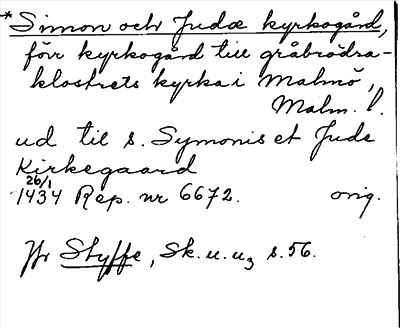 *Simon och Judæ kyrkogård,
förr kyrkogård till gråbrödra-
klostrets kyrka i Malmö,
Malm. l.
ud til s. Symonis et Jude
Kirkegaard
26/1
1434 Rep. nr 6672. orig.
Jfr Styffe, Sk. u. u3 s. 56.